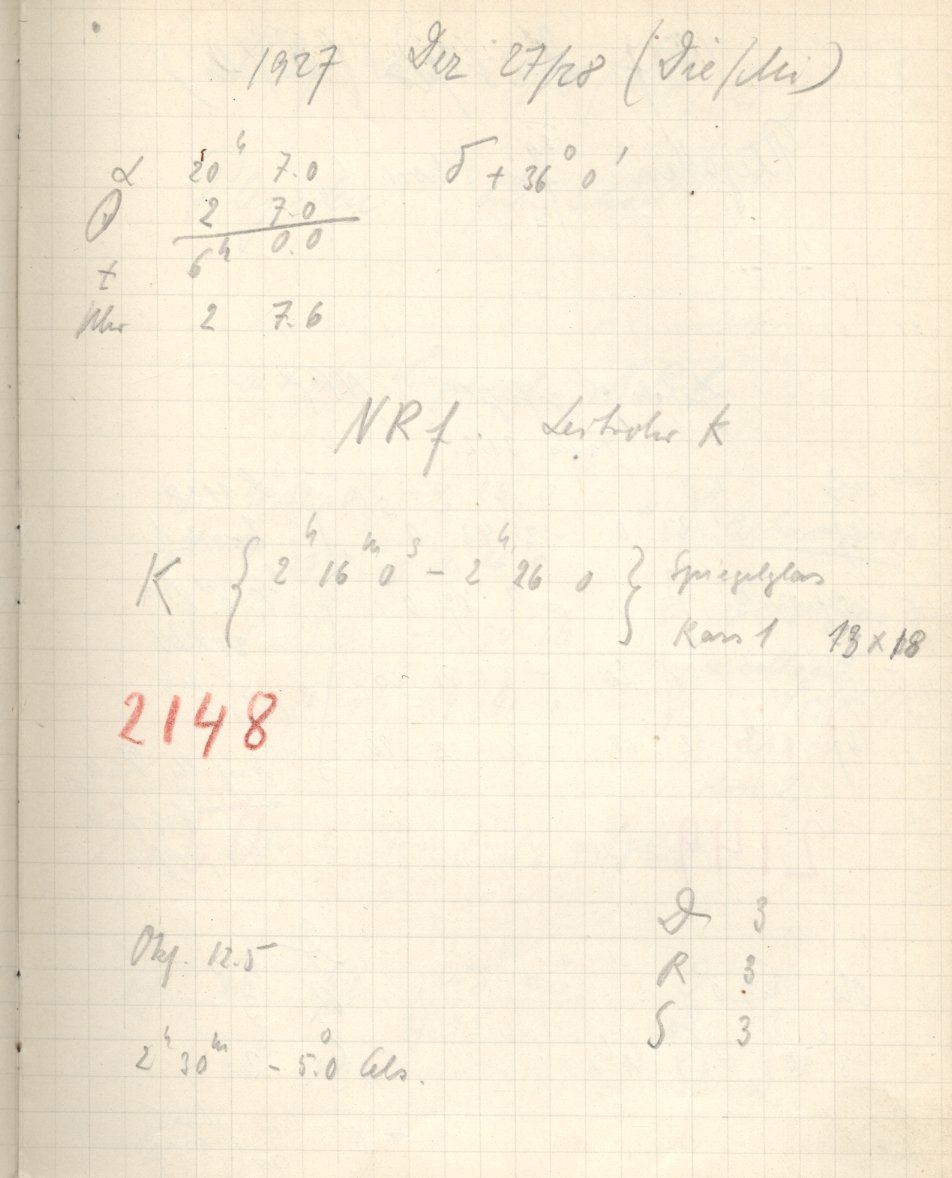 1927 Dez 27/28 (Die/Mi)
α 20ʰ 7.0 δ + 36° 0'
θ 2 7.0
t 6ʰ 0.0
Uhr 2 7.6
NRf. Leitrohr K
K { 2ʰ 16ᵐ 0ˢ – 2ʰ 26 0 } Spiegelglas
Kass 1 13 × 18
2148
Okf. 12.5
D 3
R 3
S 3
2ʰ 30ᵐ – 5.0° Cels.